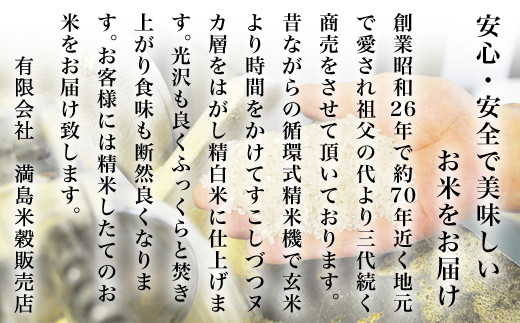 安心・安全で美味しい
お米をお届け
創業昭和26年で約70年近く地元
で愛され祖父の代より三代続く
商売をさせて頂いております。
昔ながらの循環式精米機で玄米
より時間をかけてすこしづつヌ
カ層をはがし精白米に仕上げま
す。光沢も良くふっくらと焚き
上がり食味も断然良くなりま
す。お客様には精米したてのお
米をお届け致します。
有限会社　満島米穀販売店